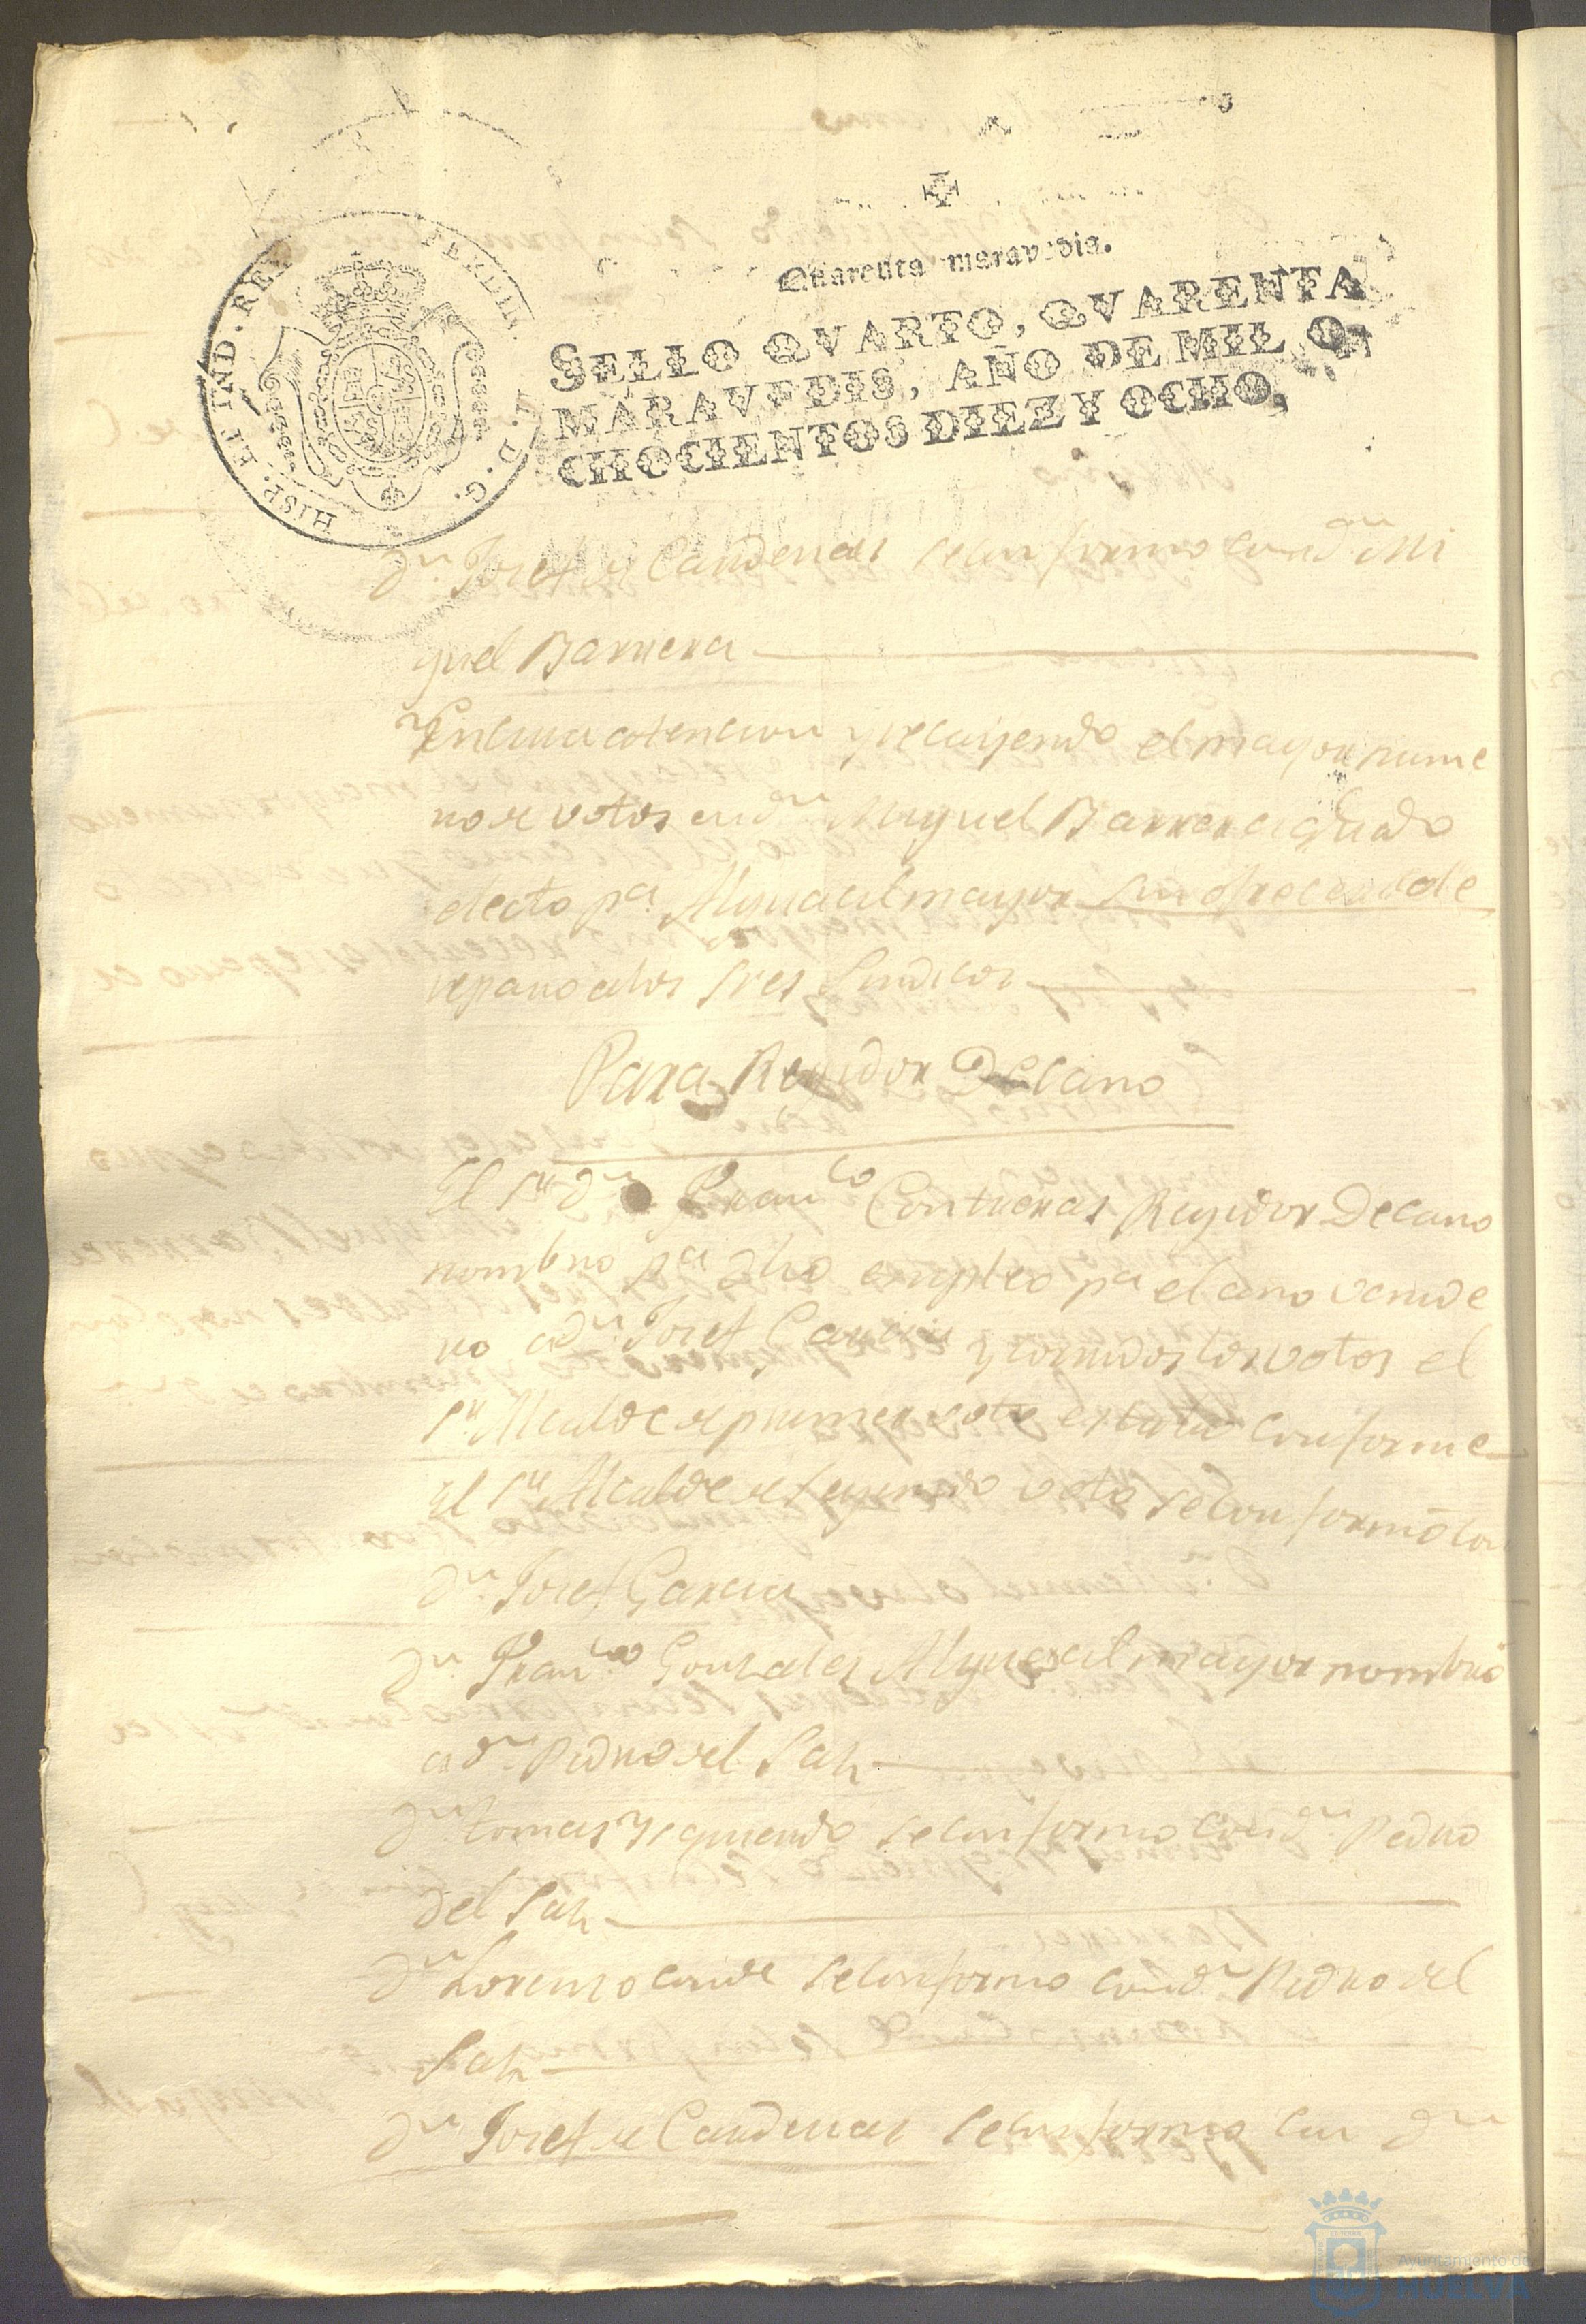 Quarenta maravedis.
SELLO QVARTO, QVARENTA
MARAVEDIS, AÑO DE MIL O-
CHOCIENTOS DIEZ Y OCHO,
HISP. ET IND. REX FERDIN. D. G.
Dn. Josef de Cardenas se conformo con dn Mi
guel Barrera
En cuia atencion y recayendo el mayor nume
ro de votos en dn Miguel Barrera quedo
electo pa. Alguacil mayor sin ofrecersele
reparo a los Sres Sindicos
Para Regidor Decano
El Sr dn Franco Contreras Regidor Decano
nombro pa dho empleo pa el año venide
ro a dn Josef Garcia y corridos los votos el
Sr. Alcalde de primer voto estuvo conforme
El Sr Alcalde de segundo voto se conformó con
dn. Josef Garcia
Dn Franco Gonzales Alguacil mayor nombró
a dn Pedro del Saz
Dn tomas Ysquierdo se conformo con dn Pedro
del Saz
Dn Lorenzo Conde se conformo con dn Pedro del
Saz
Dn Josef de Cardenas se conformo con dn
Ayuntamiento de
HUELVA